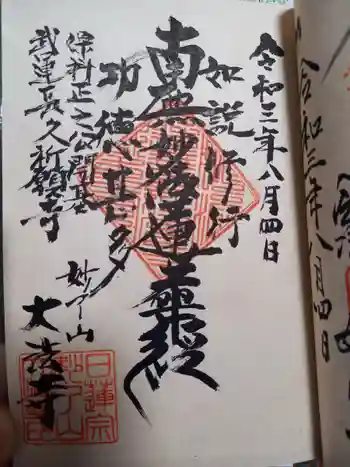 令和三年八月四日
令和三年八月四日
如説修行
南無妙法蓮華経
功徳甚多
保科正之公開基
武運長久祈願寺
妙了山
大法寺
日蓮宗
妙了山